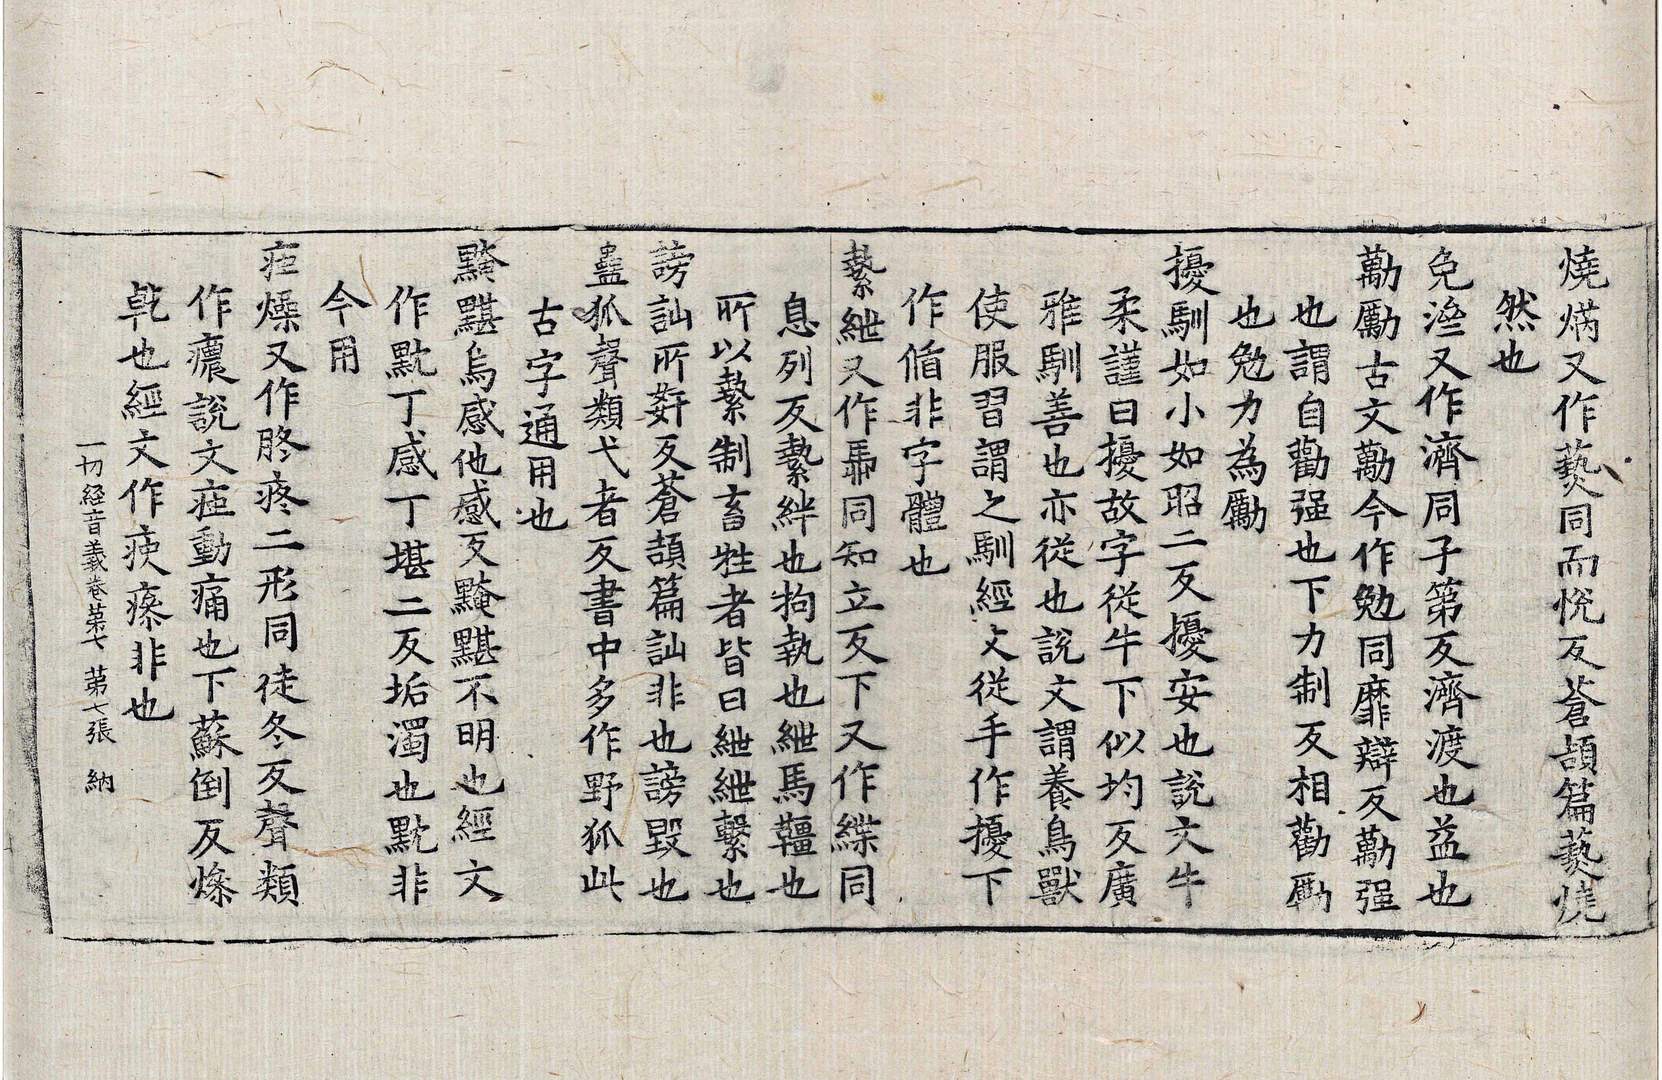 燒焫又作爇同而悅反蒼頡篇爇燒
然也
免濟又作濟同子第反濟渡也益也
勱勵古文勱今作勉同靡辯反勱强
也謂自勸强也下力制反相勸勵
也勉力為勵
擾馴如小如昭二反擾安也說文牛
柔謹曰擾故字從牛下似均反廣
雅馴善也亦從也說文謂養鳥獸
使服習謂之馴經文從手作擾下
作循非字體也
縶紲又作馽同知立反下又作緤同
息列反縶絆也拘執也紲馬韁也
所以縶制畜牲者皆曰紲紲繫也
謗訕所姧反蒼頡篇訕非也謗毀也
蠱狐聲類弋者反書中多作野狐此
古字通用也
黤黮烏感他感反黤黮不明也經文
作黕丁感丁堪二反垢濁也黕非
今用
疼燥又作胮疼二形同徒冬反聲類
作癑說文疼動痛也下蘇倒反燥
乹也經文作㾏瘝非也
一切経音義卷苐七 苐七張 納